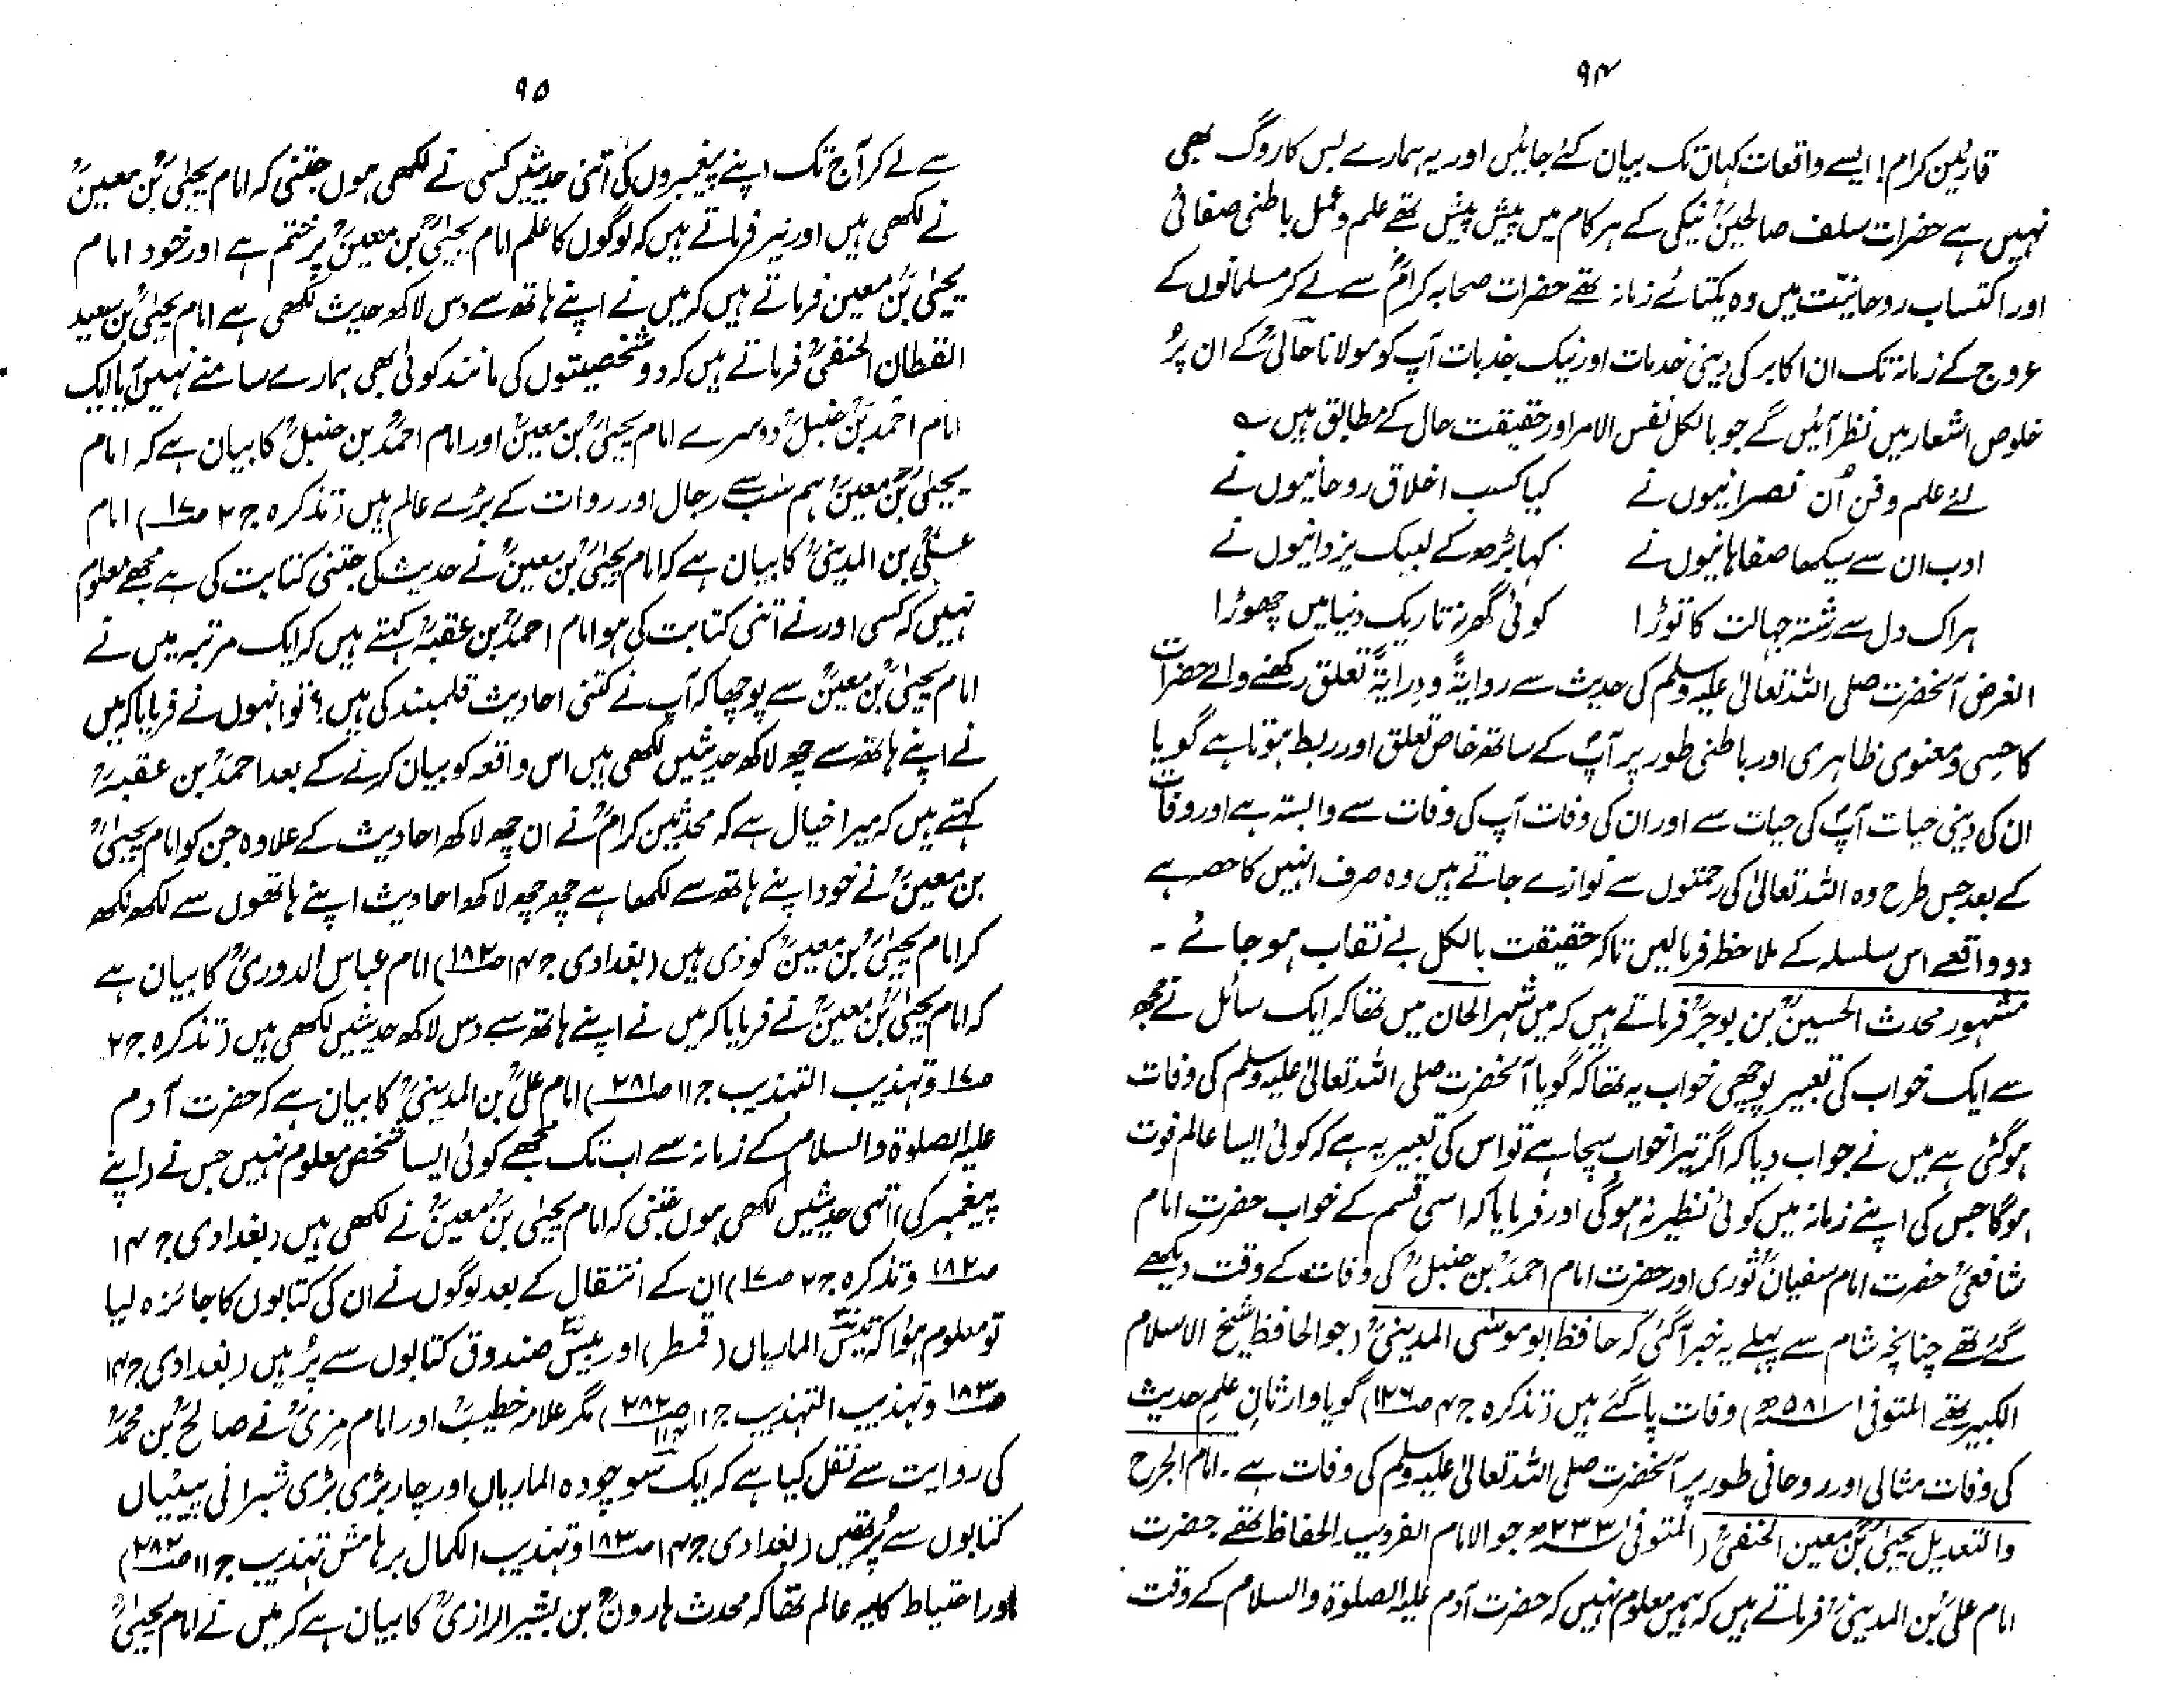 ۹۴
قارئین کرام! ایسے واقعات کہاں تک بیان کئے جائیں اور یہ ہمارے بس کا روگ بھی
نہیں ہے حضرات سلف صالحینؒ نیکی کے ہر کام میں پیش پیش تھے علم و عمل باطنی صفائی
اور اکتساب روحانیّت میں وہ یکتائے زمانہ تھے حضرات صحابہ کرامؓ سے لے کر مسلمانوں کے
عروج کے زمانہ تک ان اکابر کی دینی خدمات اور نیک جذبات آپ کو مولانا حالیؒ کے ان پرُ
خلوص اشعار میں نظر آئیں گے جو بالکل نفس الامر اور حقیقت حال کے مطابق ہیں ؎
لئے علم و فن اُن نصرانیوں نے کیا کسب اخلاق روحانیوں نے
ادب ان سے سیکھا صفاہانیوں نے کہا بڑھ کے لبیک یزدانیوں نے
ہر اک دل سے رشتہ جہالت کا توڑا کوئی گھر نہ تاریک دنیا میں چھوڑا
الغرض آنحضرت صلی اللہ تعالیٰ علیہ وسلم کی حدیث سے روایۃً و درایۃً تعلق رکھنے والے حضرات
کا حسی و معنوی ظاہری اور باطنی طور پر آپؐ کے ساتھ خاص تعلق اور ربط ہوتا ہے گویا
ان کی دینی حیات آپؐ کی حیات سے اور ان کی وفات آپ کی وفات سے وابستہ ہے اور وفات
کے بعد جس طرح وہ اللہ تعالیٰ کی رحمتوں سے نوازے جاتے ہیں وہ صرف انہیں کا حصہ ہے
دو واقعے اس سلسلہ کے ملاحظہ فرمالیں تاکہ حقیقت بالکل بے نقاب ہو جائے ۔
مشہور محدث الحسینؒ بن بوجرؒ فرماتے ہیں کہ میں شہر الحان میں تھا کہ ایک سائل نے مجھ
سے ایک خواب کی تعبیر پوچھی خواب یہ تھا کہ گویا آنحضرت صلی اللہ تعالیٰ علیہ وسلم کی وفات
ہوگئی ہے میں نے جواب دیا کہ اگر تیرا خواب سچا ہے تو اس کی تعبیر یہ ہے کہ کوئی ایسا عالم فوت
ہوگا جس کی اپنے زمانہ میں کوئی نظیر نہ ہوگی اور فرمایا کہ اسی قسم کے خواب حضرت امام
شافعیؒ حضرت امام سفیانؒ ثوری اور حضرت امام احمدؒ بن حنبلؒ کی وفات کے وقت دیکھے
گئے تھے چنانچہ شام سے پہلے یہ خبر آگئی کہ حافظ ابو موسٰی المدینیؒ (جو الحافظ شیخ الاسلام
الکبیر تھے المتوفی ۵۸۱ھ) وفات پاگئے ہیں (تذکرہ ج۴ ص۱۲۶) گویا وارثانِ علمِ حدیث
کی وفات مثالی اور روحانی طور پر آنحضرت صلی اللہ تعالیٰ علیہ وسلم کی وفات ہے ۔ امام الجرح
والتعدیل یحییٰؒ بن معین الحنفیؒ (المتوفی ۲۳۳ھ جو الامام الفرد سید الحفاظ تھے) حضرت
امام علیؒ بن المدینیؒ فرماتے ہیں کہ ہمیں معلوم نہیں کہ حضرت آدم علیہ الصلوٰۃ والسلام کے وقت
۹۵
سے لے کر آج تک اپنے پیغمبروں کی اتنی حدیثیں کسی نے لکھی ہوں جتنی کہ امام یحییٰؒ بن معینؒ
نے لکھی ہیں اور نیز فرماتے ہیں کہ لوگوں کا علم امام یحییٰؒ بن معینؒ پر ختم ہے اور خود امام
یحییٰؒ بن معین فرماتے ہیں کہ میں نے اپنے ہاتھ سے دس لاکھ حدیث لکھی ہے امام یحییٰؒ بن سعید
القطان الحنفیؒ فرماتے ہیں کہ دو شخصیتوں کی مانند کوئی بھی ہمارے سامنے نہیں آیا ایک
امام احمدؒ بن حنبلؒ دوسرے امام یحییٰؒ بن معینؒ اور امام احمدؒ بن حنبلؒ کا بیان ہے کہ امام
یحییٰؒ بن معینؒ ہم سب سے رجال اور روات کے بڑے عالم ہیں (تذکرہ ج۲ ص۱۷) امام
علیؒ بن المدینیؒ کا بیان ہے کہ امام یحییٰؒ بن معینؒ نے حدیث کی جتنی کتابت کی ہے مجھے معلوم
نہیں کہ کسی اور نے اتنی کتابت کی ہو امام احمدؒ بن عقبہؒ کہتے ہیں کہ ایک مرتبہ میں نے
امام یحییٰؒ بن معینؒ سے پوچھا کہ آپ نے کتنی احادیث قلمبند کی ہیں؟ تو انہوں نے فرمایا کہ میں
نے اپنے ہاتھ سے چھ لاکھ حدیثیں لکھی ہیں اس واقعہ کو بیان کرنے کے بعد احمدؒ بن عقبہؒ
کہتے ہیں کہ میرا خیال ہے کہ محدثین کرامؒ نے ان چھ لاکھ احادیث کے علاوہ جن کو امام یحییٰؒ
بن معینؒ نے خود اپنے ہاتھ سے لکھا ہے چھ چھ لاکھ احادیث اپنے ہاتھوں سے لکھ لکھ
کر امام یحییٰؒ بن معینؒ کو دی ہیں (بغدادی ج۱۴ ص۱۸۲) امام عباس الدوریؒ کا بیان ہے
کہ امام یحییٰؒ بن معینؒ نے فرمایا کہ میں نے اپنے ہاتھ سے دس لاکھ حدیثیں لکھی ہیں (تذکرہ ج۲
ص۱۷ و تہذیب التہذیب ج۱۱ ص۲۸۱) امام علیؒ بن المدینیؒ کا بیان ہے کہ حضرت آدم
علیہ الصلوٰۃ والسلام کے زمانہ سے اب تک مجھے کوئی ایسا شخص معلوم نہیں جس نے (اپنے
پیغمبر کی) اتنی حدیثیں لکھی ہوں جتنی کہ امام یحییٰ بنؒ معینؒ نے لکھی ہیں (بغدادی ج۱۴
ص۱۸۲ و تذکرہ ج۲ ص۱۷) ان کے انتقال کے بعد لوگوں نے ان کی کتابوں کا جائزہ لیا
تو معلوم ہوا کہ تیس الماریاں (قمطر) اور بیس صندوق کتابوں سے پُر ہیں (بغدادی ج۱۴
ص۱۸۳ و تہذیب التہذیب ج۱۱ ص۲۸۲) مگر علامہ خطیبؒ اور امام مزیؒ نے صالحؒ بن محمدؒ
کی روایت سے نقل کیا ہے کہ ایک سو چودہ ۱۱۴ الماریاں اور چار بڑی بڑی شبرانی پیٹیاں
کتابوں سے پُر تھیں (بغدادی ج۱۴ ص۱۸۳ و تہذیب الکمال برہامش تہذیب ج۱۱ ص۲۸۲)
اور احتیاط کا یہ عالم تھا کہ محدث ہارونؒ بن بشیر الرازیؒ کا بیان ہے کہ میں نے امام یحییٰؒ